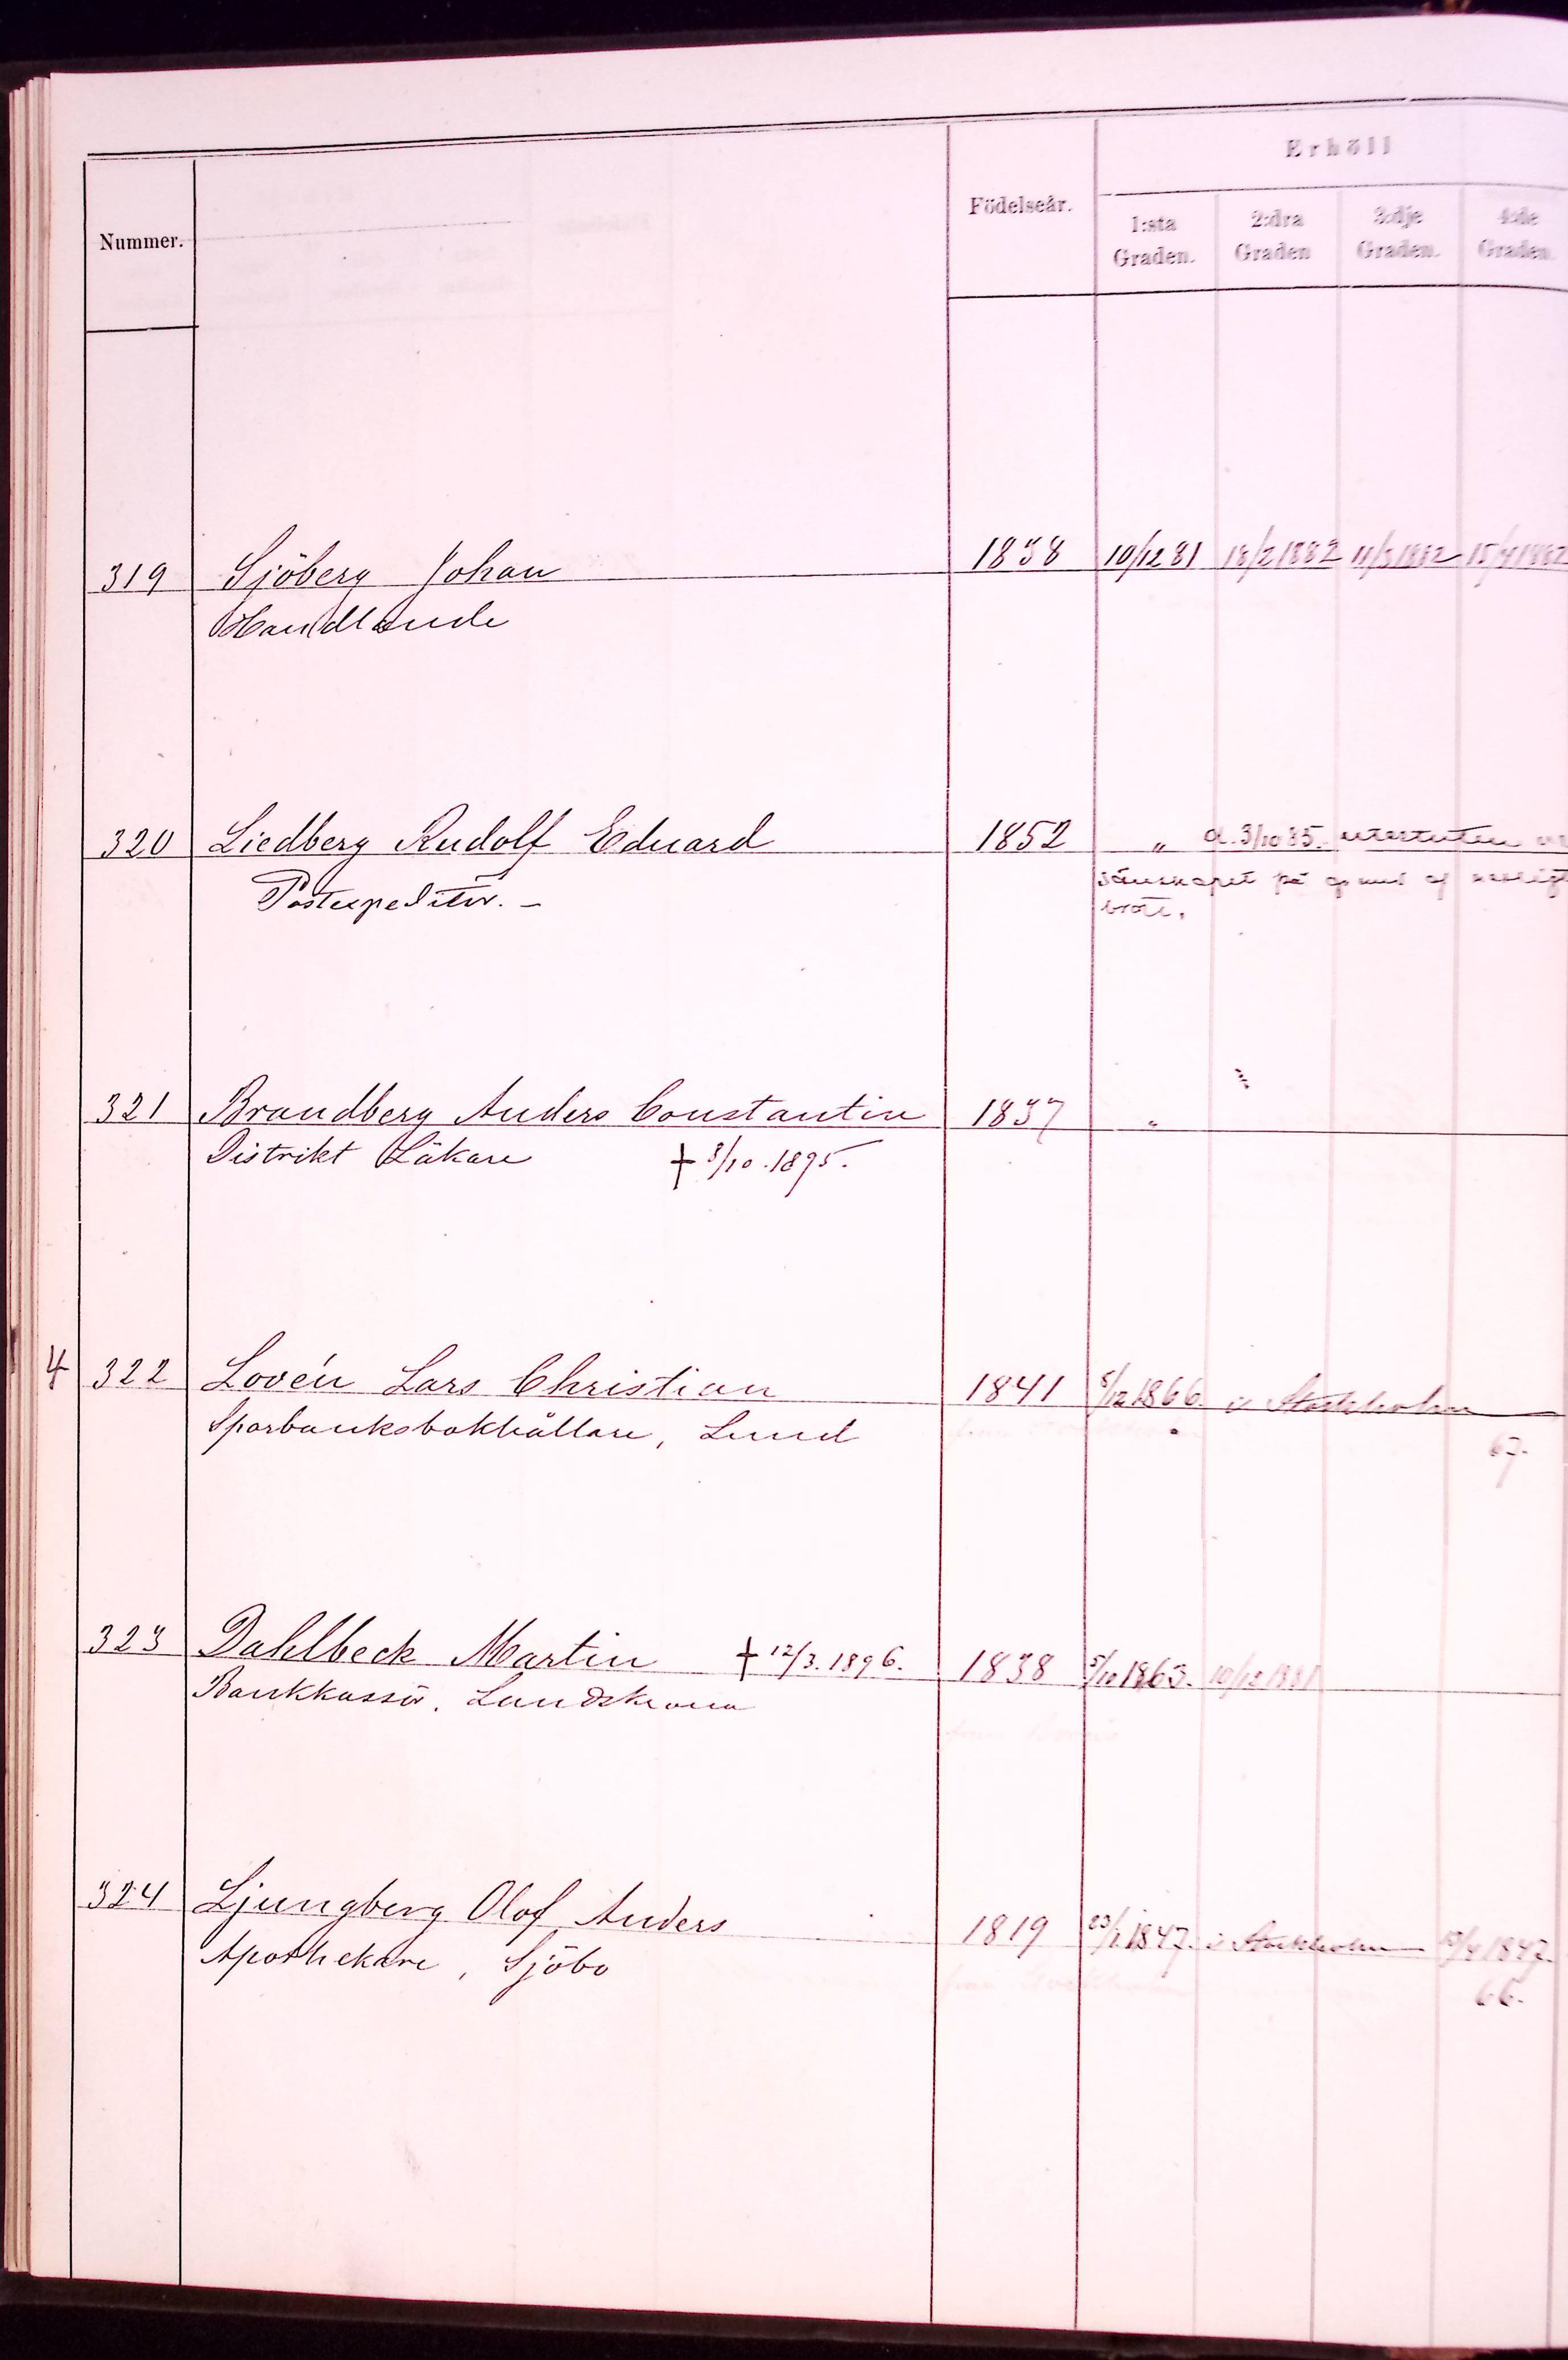 Erhöll
Nummer.
Födelseår.
1:sta Graden.
2:dra Graden
3:dje Graden.
4:de Graden
319 Sjöberg Johan 1838 10/12 81 18/2 1882 11/3 1882 15/4 1882
Handlande
320 Liedberg Rudolf Eduard 1852 „ d. 3/10 85. utesluten
Postexpeditör. – på grund af
brott.
321 Brandberg Anders Constantin 1837 „
Distrikt Läkare † 3/10. 1895.
4 322 Lovén Lars Christian 1841 5/12 1866. i Stockholm
Sparbanksbokhållare, Lund 67.
323 Dahlbeck Martin † 12/3. 1896. 1838 5/10 1863. 10/12 1881
Bankkassör. Landskrona
324 Ljungberg Olof Anders 1819 23/1 1847. i Stockholm 1847.
Apothekare, Sjöbo 66.